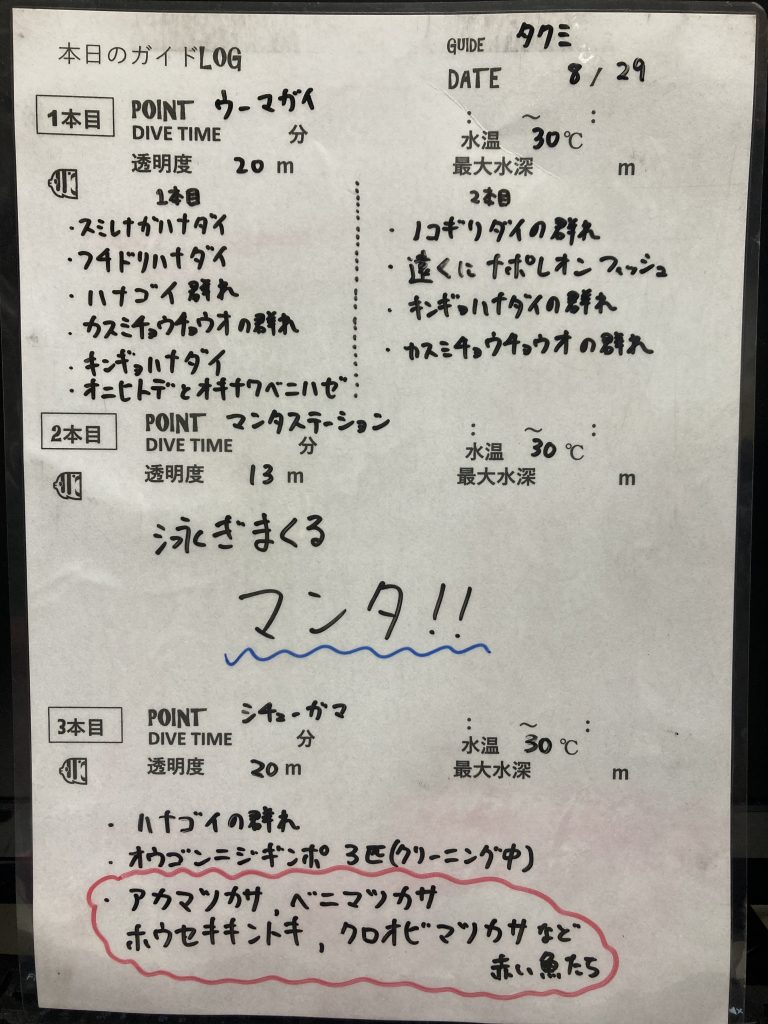 本日のガイドLOG
GUIDE タクミ
DATE 8/29
1本目 POINT ウーマガイ
: ～ :
DIVE TIME 分
水温 30℃
透明度 20 m
最大水深 m
1本目
・スミレナガハナダイ
・フチドリハナダイ
・ハナゴイ群れ
・カスミチョウチョウオの群れ
・キンギョハナダイ
・オニヒトデとオキナワベニハゼ
2本目
・ノコギリダイの群れ
・遠くにナポレオンフィッシュ
・キンギョハナダイの群れ
・カスミチョウチョウオの群れ
2本目 POINT マンタステーション
: ～ :
DIVE TIME 分
水温 30℃
透明度 13 m
最大水深 m
泳ぎまくる
マンタ!!
3本目 POINT シチューガマ
: ～ :
DIVE TIME 分
水温 30℃
透明度 20 m
最大水深 m
・ハナゴイの群れ
・オウゴンニジギンポ 3匹(クリーニング中)
・アカマツカサ, ベニマツカサ
ホウセキキントキ, クロオビマツカサなど
赤い魚たち